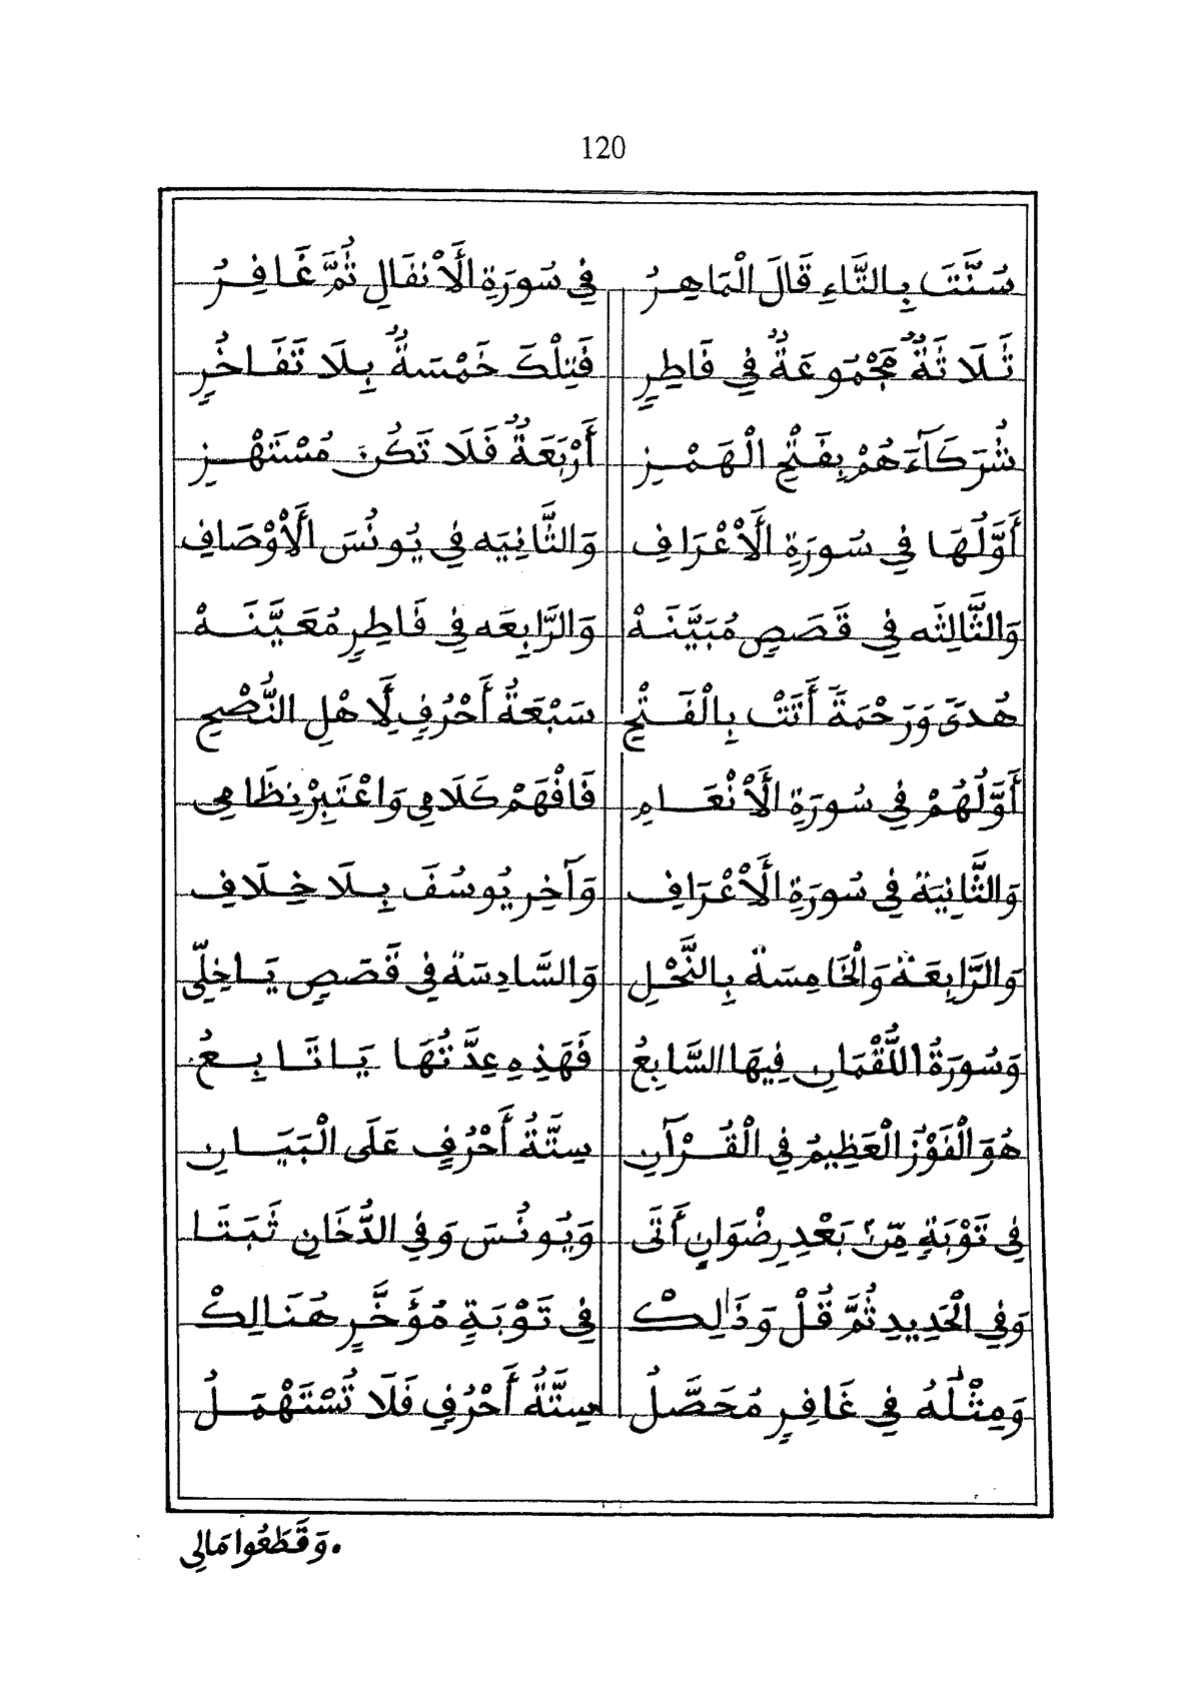 120
سُنَّتَ بِالتَّاءِ قَالَ الْمَاهِرُ فِي سُورَةِ الْأَنْفَالِ ثُمَّ غَافِرُ
ثَلَاثَةٌ مَجْمُوعَةٌ فِي فَاطِرٍ فَتِلْكَ خَمْسَةٌ بِلَا تَفَاخُرٍ
شُرَكَآءَهُمْ بِفَتْحِ الْهَمْزِ أَرْبَعَةٌ فَلَا تَكُنْ مُسْتَهْزِ
أَوَّلُهَا فِي سُورَةِ الْأَعْرَافِ وَالثَّانِيَه فِي يُونُسَ الْأَوْصَافِ
وَالثَّالِثَه فِي قَصَصٍ مُبَيَّنَهْ وَالرَّابِعَه فِي فَاطِرٍ مُعَيَّنَهْ
هُدًى وَرَحْمَةً أَتَتْ بِالْفَتْحِ سَبْعَةُ أَحْرُفٍ لِأَهْلِ النُّصْحِ
أَوَّلُهُمْ فِي سُورَةِ الْأَنْعَامِ فَافْهَمْ كَلَامِي وَاعْتَبِرْ نِظَامِي
وَالثَّانِيَةُ فِي سُورَةِ الْأَعْرَافِ وَآخِرِ يُوسُفَ بِلَا خِلَافِ
وَالرَّابِعَةُ وَالْخَامِسَةُ بِالنَّحْلِ وَالسَّادِسَةُ فِي قَصَصٍ يَاخِلِّي
وَسُورَةُ اللُّقْمَانِ فِيهَا السَّابِعُ فَهَذِهِ عِدَّتُهَا يَاتَابِعُ
هُوَ الْفَوْزُ الْعَظِيمُ فِي الْقُرْآنِ سِتَّةُ أَحْرُفٍ عَلَى الْبَيَانِ
فِي تَوْبَةٍ مِنْ بَعْدِ رِضْوَانٍ أَتَى وَيُونُسَ وَفِي الدُّخَانِ ثَبَتَا
وَفِي الْحَدِيدِ ثُمَّ قُلْ وَذَالِكْ فِي تَوْبَةٍ مُؤَخَّرٍ هُنَالِكْ
وَمِثْلُهُ فِي غَافِرٍ مُحَصَّلُ سِتَّةُ أَحْرُفٍ فَلَا تُسْتَهْمَلُ
وَقَطَعُوا مَالِي